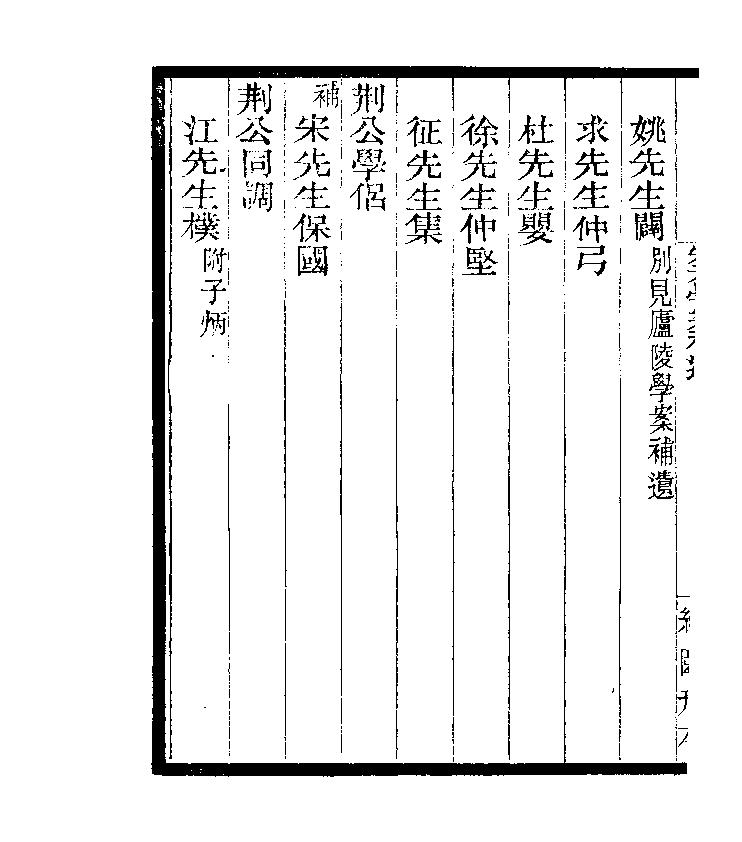 姚先生闢別見廬陵學案補遺
求先生仲弓
杜先生嬰
徐先生仲堅
征先生集
荆公學侶
補宋先生保國
荆公同調
江先生樸附子炳